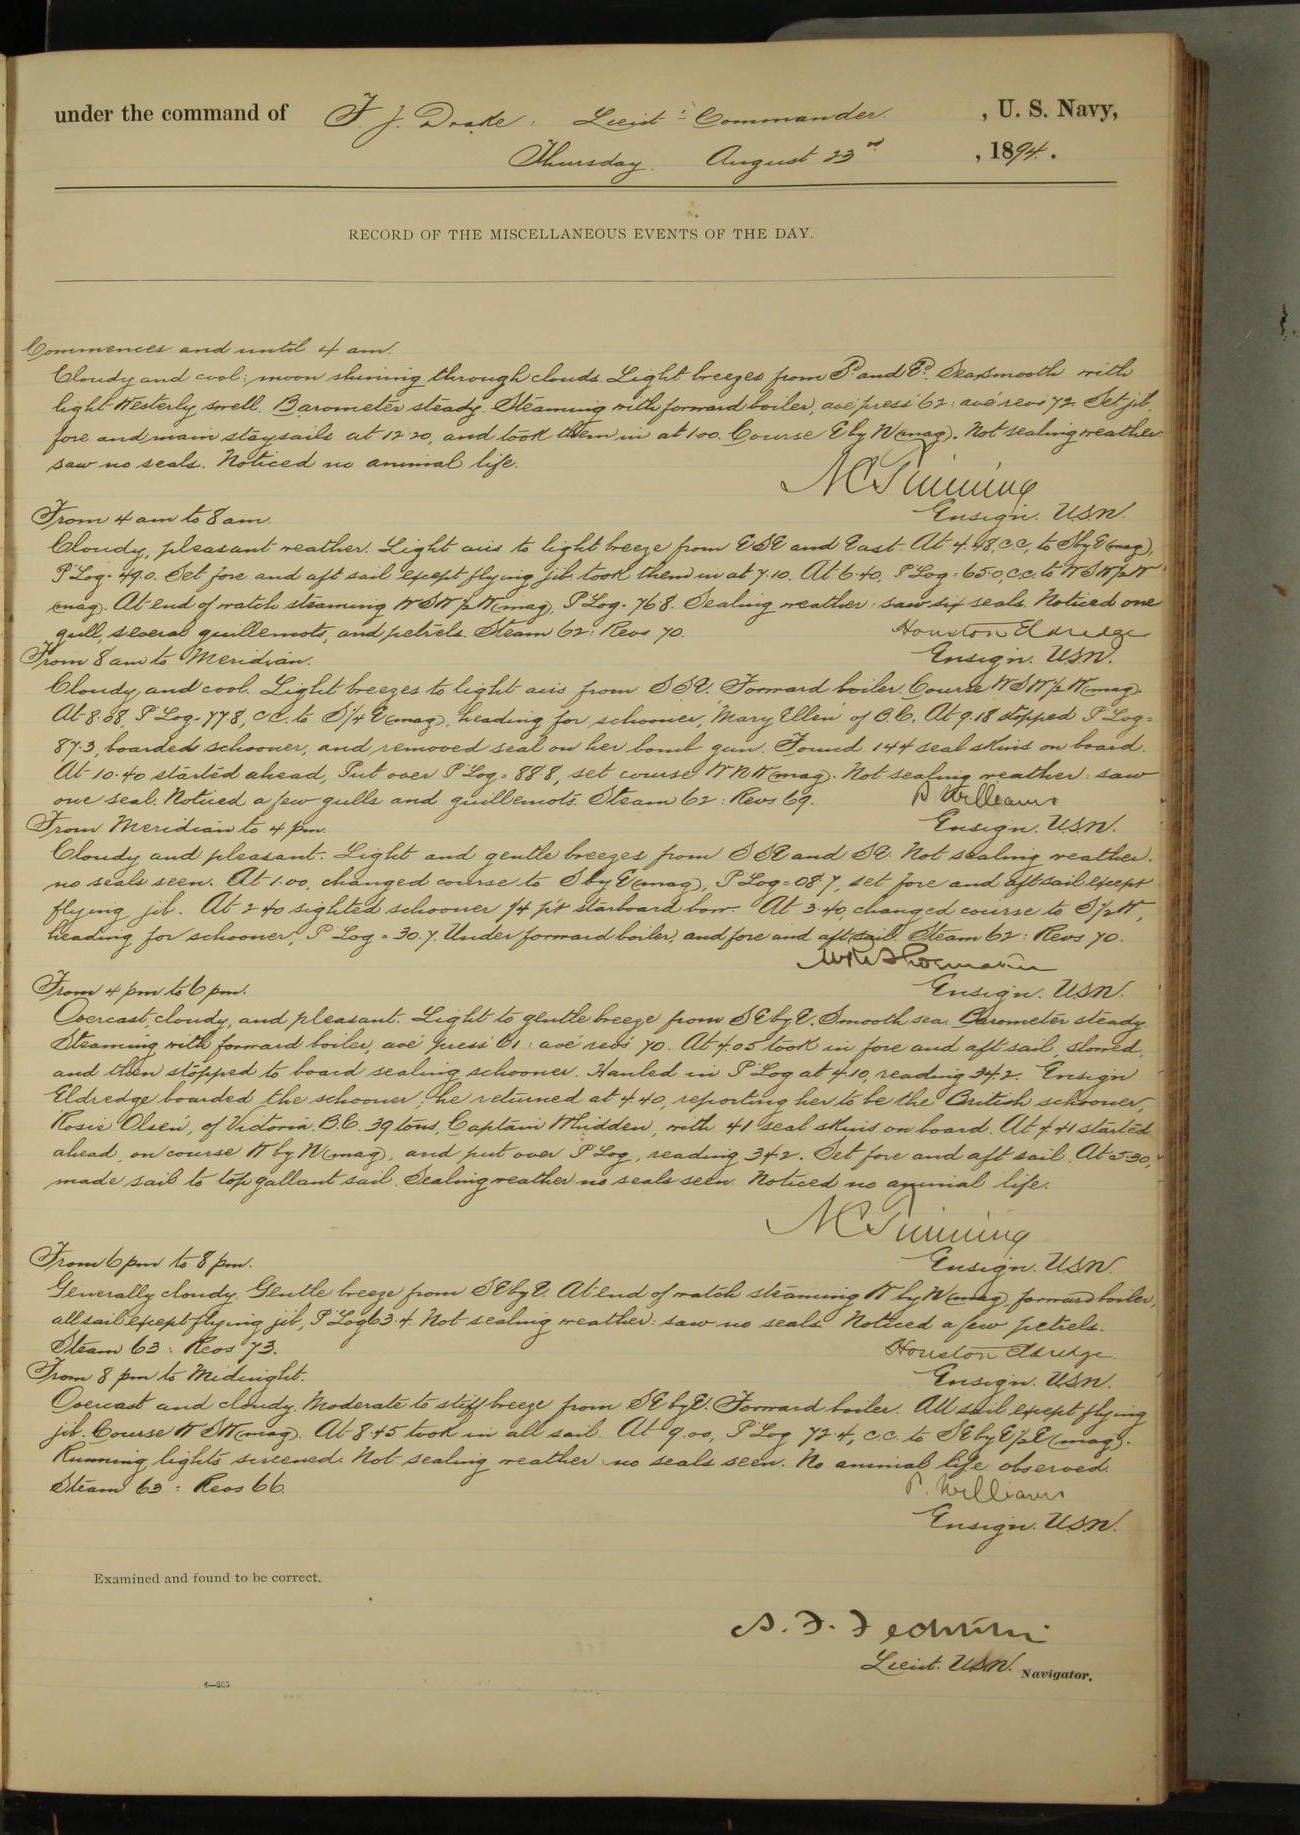 under the command of F. J. Drake, Lieut. Commander , U. S. Navy,
Thursday August 23rd , 1894.
RECORD OF THE MISCELLANEOUS EVENTS OF THE DAY.
Commences and until 4 am.
Cloudy and cool: moon shining through clouds. Light breezes from Sd and Ed. Sea smooth with
light Westerly swell. Barometer steady. Steaming with forward boiler, ave press 62: ave revs 72. Set jib,
fore and main staysails at 12.20, and took them in at 1.00. Course E by N (mag). Not sealing weather
saw no seals. Noticed no animal life.
Ensign. U.S.N.
From 4 am to 8 am.
Cloudy, pleasant weather. Light airs to light breeze from ESE and East. At 4.48, c.c. to S by E (mag),
P Log = 49.0. Set fore and aft sail except flying jib, took them in at 7.10. At 6.40, P Log = 65.0, c.c. to WSW 1/2 W
(mag). At end of watch steaming WSW 1/2 W (mag), P Log = 76.8. Sealing weather: saw six seals. Noticed one
gull, several guillemots, and petrels. Steam 62: Revs 70.
Houston Eldredge
Ensign. U.S.N.
From 8 am to Meridian.
Cloudy, and cool. Light breezes to light airs from SSE. Forward boiler. Course WSW 1/2 W (mag).
At 8.08, P Log = 77.8, c.c. to S 1/4 E (mag), heading for schooner, "Mary Ellen" of B.C. At 9.18 stopped P Log =
87.3, boarded schooner, and removed seal on her bomb gun. Found 144 seal skins on board.
At 10.40 started ahead, Put over P Log = 88.8, set course WNW (mag). Not sealing weather: saw
one seal. Noticed a few gulls and guillemots. Steam 62: Revs 69.
P. Williams
Ensign. U.S.N.
From Meridian to 4 pm.
Cloudy and pleasant. Light and gentle breezes from SSE and SE. Not sealing weather.
no seals seen. At 1.00, changed course to S by E (mag), P Log = 08.7, set fore and aft sail except
flying jib. At 2.40 sighted schooner 1/4 pt starboard bow. At 3.40, changed course to S 1/2 W,
heading for schooner, P Log = 30.7. Under forward boiler, and fore and aft sail. Steam 62: Revs 70.
Ensign. U.S.N.
From 4 pm to 6 pm.
Overcast, cloudy, and pleasant. Light to gentle breeze from SE by E. Smooth sea. Barometer steady.
Steaming with forward boiler, ave press 61: ave revs 70. At 4.05 took in fore and aft sail, slowed,
and then stopped to board sealing schooner. Hauled in P Log at 4.10, reading 34.2. Ensign
Eldredge boarded the schooner, he returned at 4.40, reporting her to be the British schooner,
"Rosie Olsen", of Victoria. B.C. 39 tons, Captain Whidden, with 41 seal skins on board. At 4.41 started
ahead, on course W by N (mag), and put over P Log, reading 34.2. Set fore and aft sail. At 5.30,
made sail to top gallant sail. Sealing weather no seals seen. Noticed no animal life.
Ensign. U.S.N.
From 6 pm to 8 pm.
Generally cloudy. Gentle breeze from SE by E. At end of watch steaming W by N (mag), forward boiler,
all sail except flying jib, P Log 63.4. Not sealing weather: saw no seals. Noticed a few petrels.
Steam 63: Revs 73.
Houston Eldredge.
Ensign. U.S.N.
From 8 pm to Midnight.
Overcast and cloudy. Moderate to stiff breeze from SE by E. Forward boiler. All sail except flying
jib. Course WSW (mag). At 8.45 took in all sail. At 9.00, P Log 72.4, c.c. to SE by E 1/2 E (mag).
Running lights screened. Not sealing weather no seals seen. No animal life observed.
Steam 63: Revs 66.
P. Williams
Ensign. U.S.N.
Examined and found to be correct.
Lieut. U.S.N. Navigator.